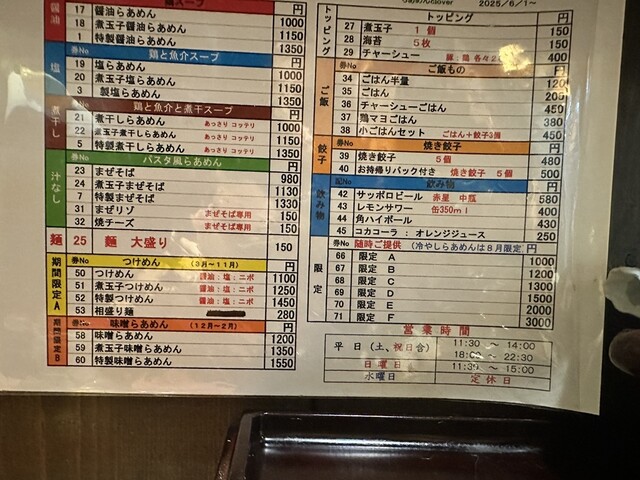 醤油
鶏スープ
円
17 醤油らあめん 1000
18 煮玉子醤油らあめん 1150
1 特製醤油らあめん 1350
塩
券No 鶏と魚介スープ 円
19 塩らあめん 1000
20 煮玉子塩らあめん 1150
3 製塩らあめん 1350
煮干し
券No 鶏と魚介と煮干スープ 円
21 煮干しらあめん あっさり コッテリ 1000
22 煮玉子煮干しらあめん あっさり コッテリ 1150
5 特製煮干しらあめん あっさり コッテリ 1350
汁なし
券No パスタ風らあめん 円
23 まぜそば 980
24 煮玉子まぜそば 1130
7 特製まぜそば 1330
31 まぜリゾ まぜそば専用 150
32 焼チーズ まぜそば専用 150
麺 25 麺 大盛り 150
期間限定A
券No つけめん (3月~11月) 円
50 つけめん 醤油:塩:ニボ 1100
51 煮玉子つけめん 醤油:塩:ニボ 1250
52 特製つけめん 醤油:塩:ニボ 1450
53 相盛り麺 280
期間限定B
券No 味噌らあめん (12月~2月) 円
58 味噌らあめん 1200
59 煮玉子味噌らあめん 1350
60 特製味噌らあめん 1550
2025/6/1~
トッピング
トッピング 円
27 煮玉子 1個 150
28 海苔 5枚 150
29 チャーシュー 豚:鶏 各々2 400
ご飯
券No ご飯もの 円
34 ごはん半量 120
35 ごはん 205
36 チャーシューごはん 450
37 鶏マヨごはん 380
38 小ごはんセット ごはん+餃子3個 450
餃子
券No 焼き餃子 円
39 焼き餃子 5個 480
40 お持帰りパック付き 焼き餃子 5個 500
飲み物
券No 飲み物 円
42 サッポロビール 赤星 中瓶 580
43 レモンサワー 缶350ml 400
44 角ハイボール 430
45 コカコーラ:オレンジジュース 250
限定
券No 随時ご提供 (冷やしらあめんは8月限定) 円
66 限定 A 1000
67 限定 B 1200
68 限定 C 1300
69 限定 D 1500
70 限定 E 2000
71 限定 F 3000
営業時間
平日(土、祝日含) 11:30 ~ 14:00
18:00 ~ 22:30
日曜日 11:30 ~ 15:00
水曜日 定休日